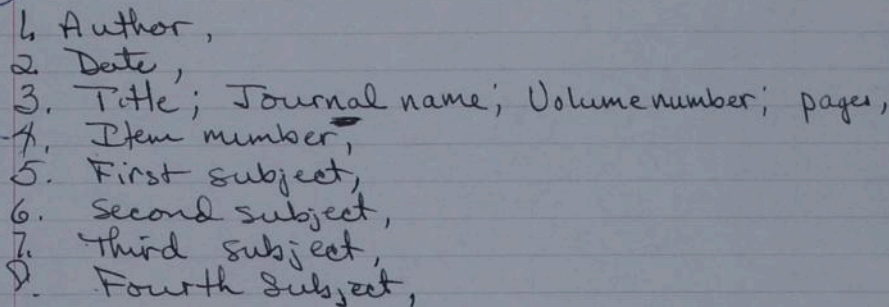 1. Author,
2. Date,
3. Title; Journal name; Volume number; pages,
4. Item number,
5. First subject,
6. Second subject,
7. Third subject,
8. Fourth Subject,